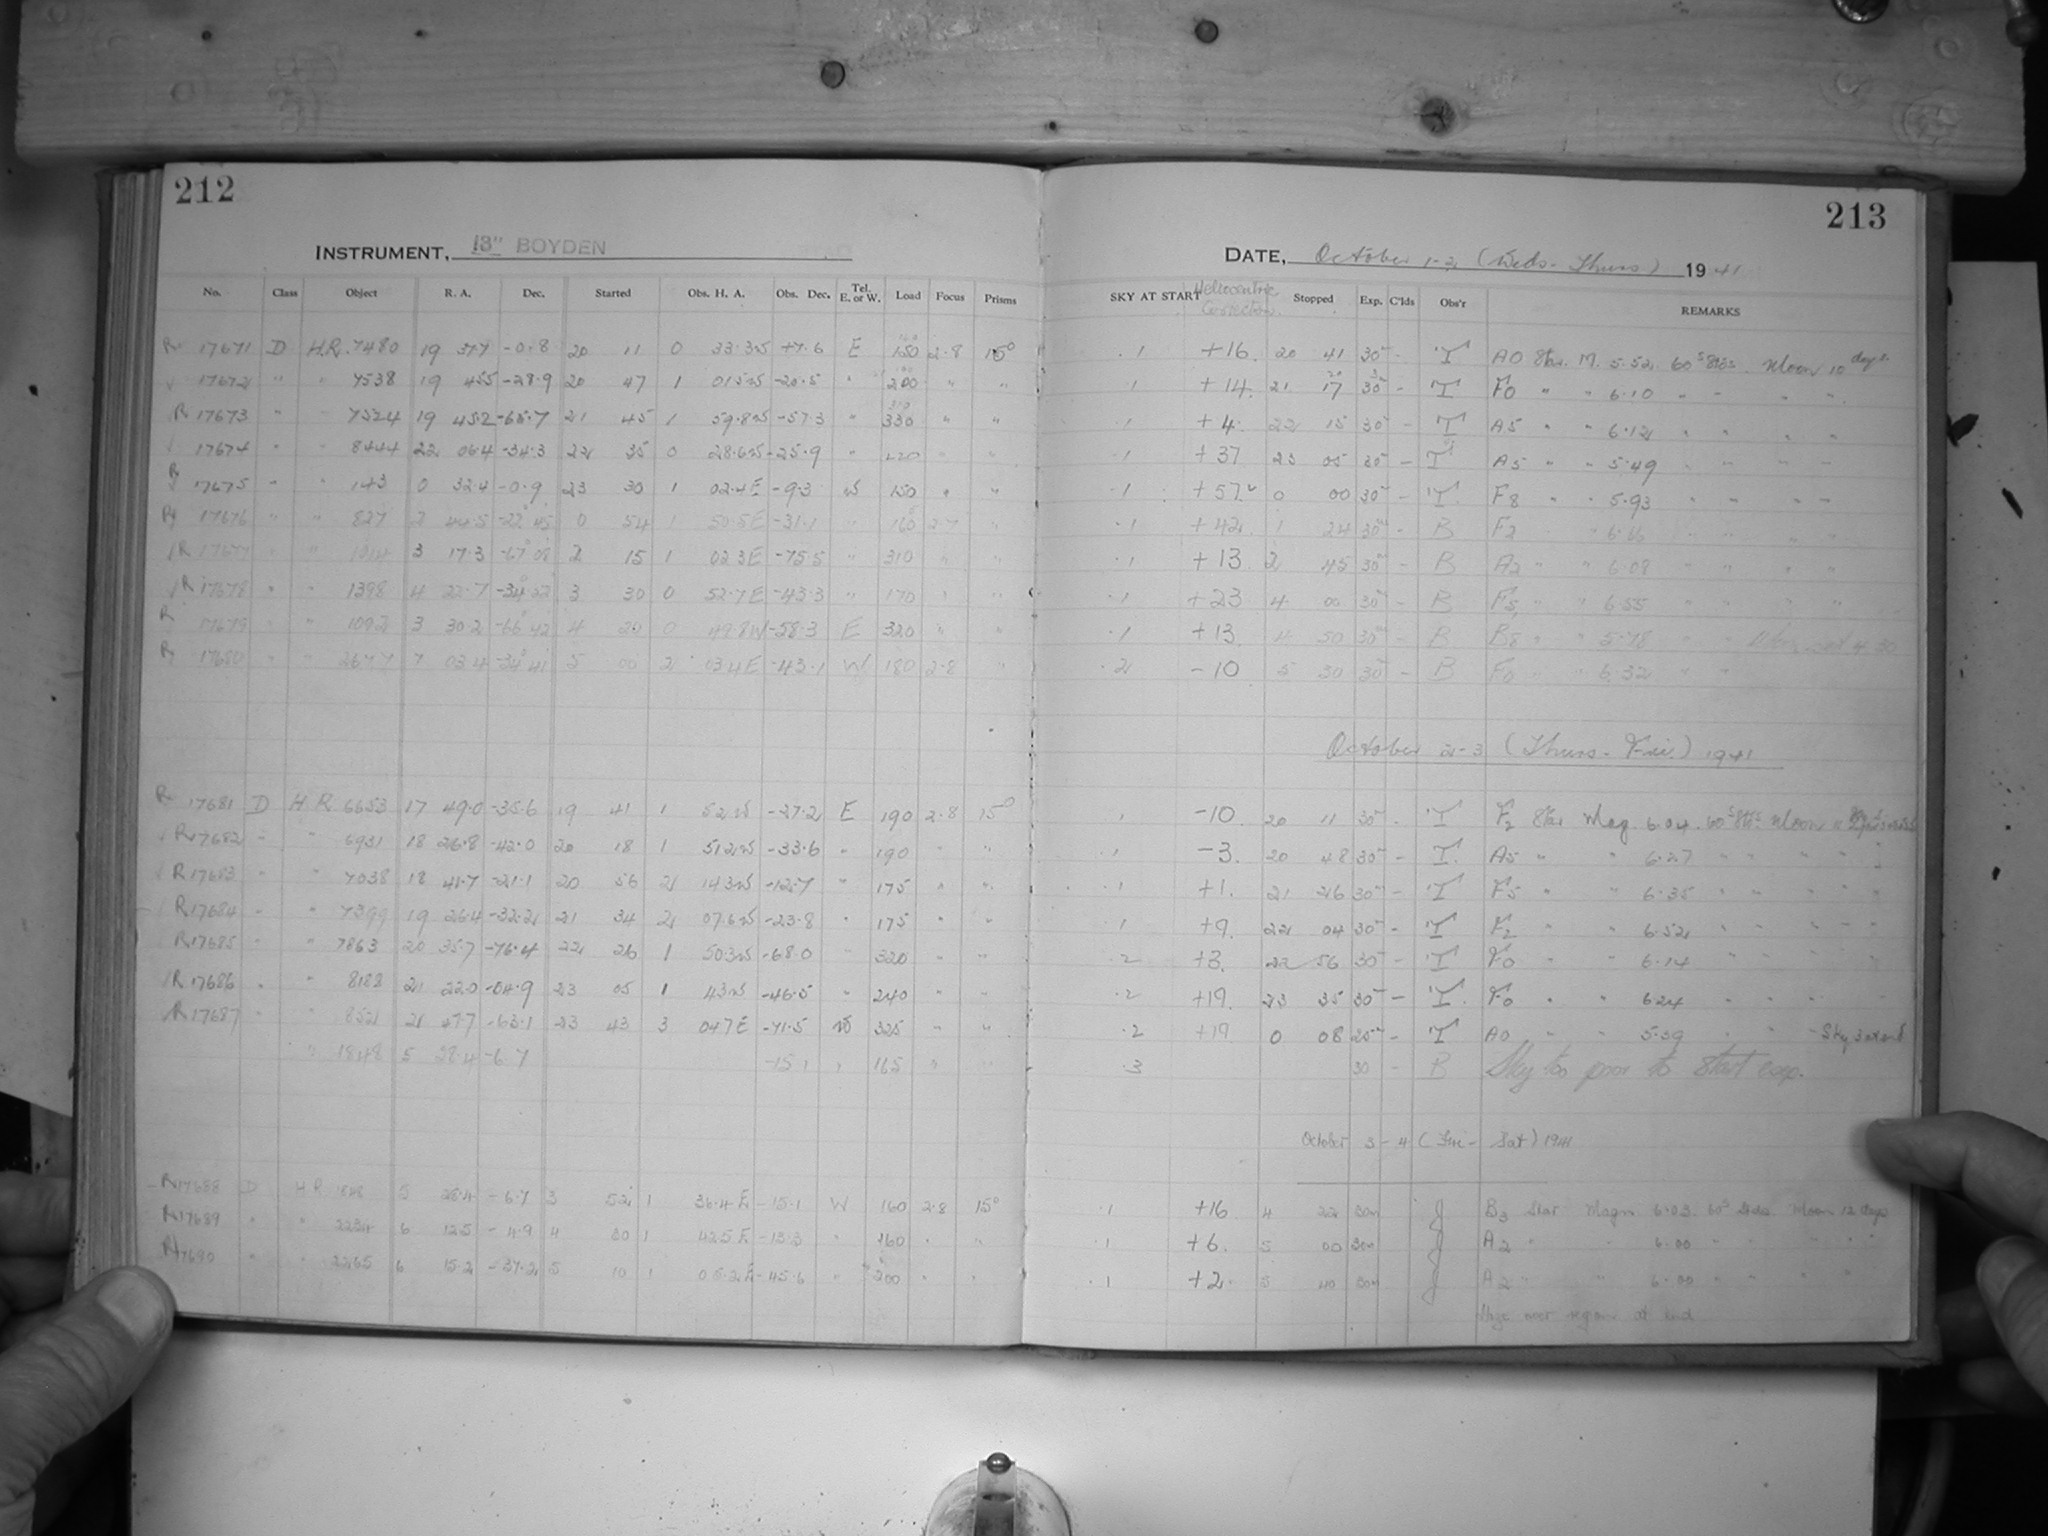 212
213
INSTRUMENT, 13" BOYDEN
DATE, October 1-2 (Weds-Thurs) 1941
No. Class Object R. A. Dec. Started Obs. H. A. Obs. Dec. Tel. E. or W. Load Focus Prisms SKY AT START Heliocentric Correction Stopped Exp. C'lds Obs'r REMARKS
R 17671 D H.R. 7480 19 37.7 -0.8 20 11 0 33.3W +7.6 E 150 2.8 15° .1 +16 20 41 30 - T A0 Star M. 5.52 60s Stds. Moon 10 days
17672 " " 7538 19 45.5 -28.9 20 47 1 01.5W -20.5 " 200 " " .1 +14 21 17 30 - T F0 " " 6.10 " " " "
R 17673 " " 7524 19 45.2 21 45 1 59.8W -57.3 " 330 " " .1 +4 22 15 30 - T A5 " " 6.12 " " " "
17674 " " 8444 22 06.4 -34.3 22 35 0 28.6W -25.9 " " " .1 +37 23 05 30 - T A5 " " 5.49 " " " "
R 17675 " " 143 0 32.4 -0.9 23 30 1 02.4E -9.3 W 150 " " .1 +57 0 00 30 - T F8 " " 5.93 " " " "
R 17676 " " 827 2 44.5 -22°45 0 54 1 50.5E -31.1 " 165 2.7 " .1 +42 1 24 30 - B F2 " " 6.66 " " "
R 17677 " " 1014 3 17.3 -67°08 2 15 1 02.3E -75.5 " 310 " " .1 +13 2 45 30 - B A2 " " 6.08 " " "
R 17678 " " 1398 4 22.7 3 30 0 52.7E -43.3 " 170 " " .1 +23 4 00 30 - B F5 " " 6.55 " " "
R 17679 " " 1092 3 30.2 -66°42 4 20 0 49.8W -58.3 E 320 " " .1 +13 4 50 30 - B B8 " " 5.78 " " Moon set 4 30
R 17680 " " 2677 7 03.4 -34°41 5 00 2 03.4E -43.1 W 180 2.8 " .2 -10 5 30 30 - B F0 " " 6.32 " "
October 2-3 (Thurs-Fri.) 1941
R 17681 D H R 6653 17 49.0 -35.6 19 41 1 52W -27.2 E 190 2.8 15° .1 -10 20 11 30 - T F2 Star Mag. 6.04 60s Stds. Moon 11
R 17682 " " 6931 18 26.8 -42.0 20 18 1 51.2W -33.6 " 190 " " .1 -3 20 48 30 - T A5 " " 6.27 " " " "
R 17683 " " 7038 18 41.7 -21.1 20 56 2 14.3W -12.7 " 175 " " .1 +1 21 26 30 - T F5 " " 6.35 " " " "
R 17684 " " 7399 19 26.4 -32.2 21 34 2 07.6W -23.8 " 175 " " .1 +9 22 04 30 - T F2 " " 6.52 " " " "
R 17685 " " 7863 20 35.7 -76.4 22 26 1 50.3W -68.0 " 320 " " .2 +3 22 56 30 - T F0 " " 6.14 " " " "
R 17686 " " 8188 21 22.0 23 05 1 43W -46.5 " 240 " " .2 +19 23 35 30 - T F0 " " 6.24 " " "
R 17687 " " 8521 21 47.7 -63.1 23 43 3 04.7E -71.5 W 325 " " .2 +19 0 08 25 - T A0 " " 5.59 " " - Sky
" 1848 5 28.4 -6.7 -15.1 " 165 " " .3 30 - B Sky too poor to start exp.
October 3-4 (Fri-Sat) 1941
R 17688 D H R 1848 5 28.4 -6.7 3 52 1 36.4E -15.1 W 160 2.8 15° .1 +16 4 22 30m J B3 Star Magn 6.03 60s Stds Moon 12 days
R 17689 " " 2234 6 12.5 -4.9 4 30 1 42.5E -13.3 " 160 " " .1 +6 5 00 30m J A2 " " 6.00 " " " "
R 17690 " " 2265 6 15.2 -37.2 5 10 1 05.2E -45.6 " 200 " " .1 +2 5 40 30m J A2 " " 6.00 " " " "
Haze over region at end